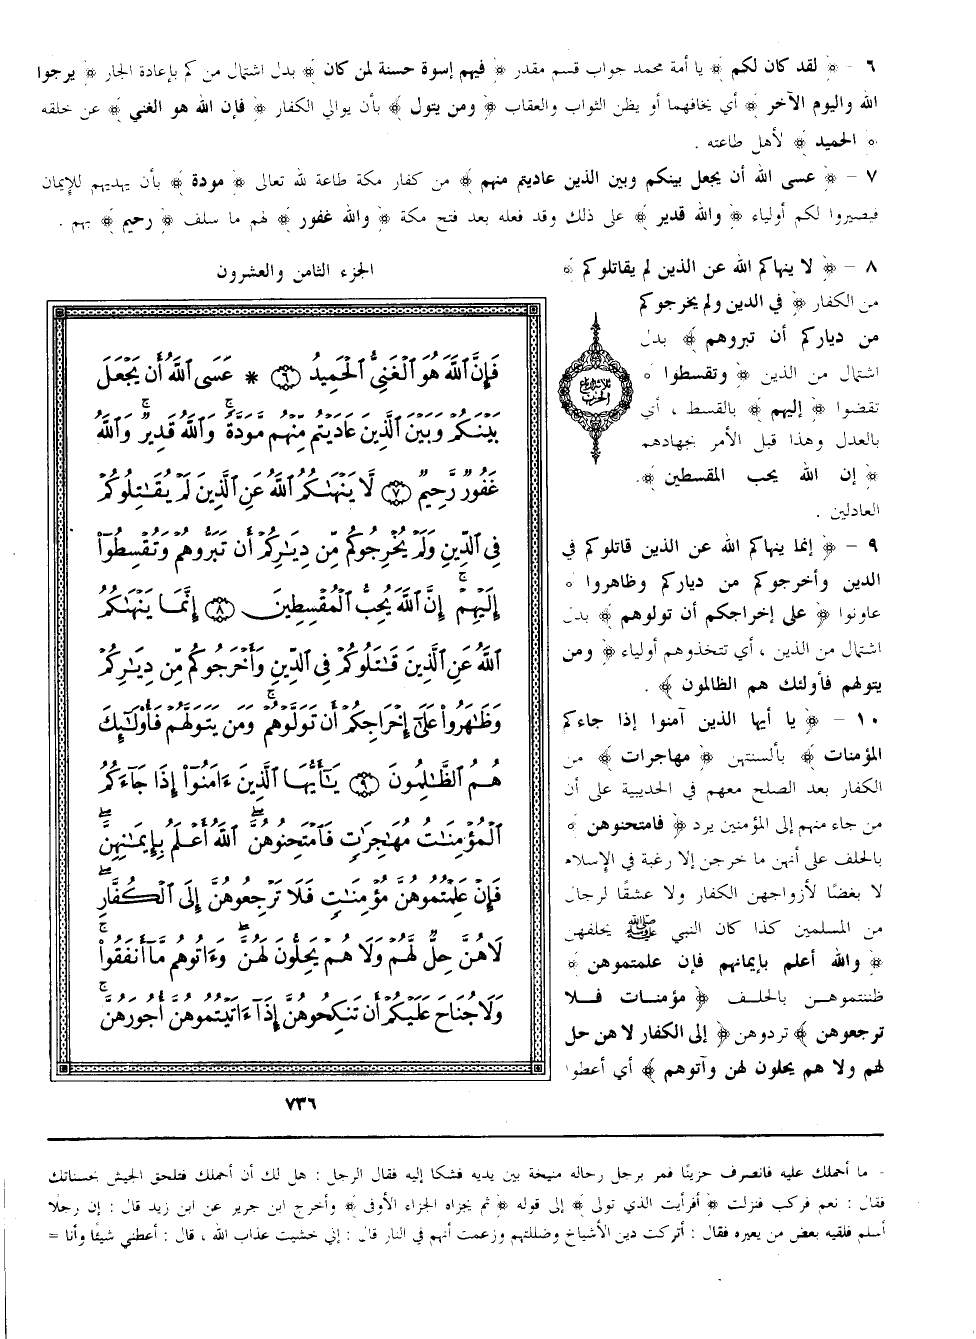 ٦ - ﴿ لقد كان لكم ﴾ يا أمة محمد جواب قسم مقدر ﴿ فيهم إسوة حسنة لمن كان ﴾ بدل اشتمال من كم بإعادة الجار ﴿ يرجوا
الله واليوم الآخر ﴾ أي يخافهما أو يظن الثواب والعقاب ﴿ ومن يتول ﴾ بأن يوالي الكفار ﴿ فإن الله هو الغني ﴾ عن خلقه
﴿ الحميد ﴾ لأهل طاعته .
٧ - ﴿ عسى الله أن يجعل بينكم وبين الذين عاديتم منهم ﴾ من كفار مكة طاعة لله تعالى ﴿ مودة ﴾ بأن يهديهم للإيمان
فيصيروا لكم أولياء ﴿ والله قدير ﴾ على ذلك وقد فعله بعد فتح مكة ﴿ والله غفور ﴾ لهم ما سلف ﴿ رحيم ﴾ بهم .
٨ - ﴿ لا ينهاكم الله عن الذين لم يقاتلوكم ﴾
من الكفار ﴿ في الدين ولم يخرجوكم
من دياركم أن تبروهم ﴾ بدل
اشتمال من الذين ﴿ وتقسطوا ﴾
تقضوا ﴿ إليهم ﴾ بالقسط ، أي
بالعدل وهذا قبل الأمر بجهادهم
﴿ إن الله يحب المقسطين ﴾.
العادلين .
٩ - ﴿ إنما ينهاكم الله عن الذين قاتلوكم في
الدين وأخرجوكم من دياركم وظاهروا ﴾
عاونوا ﴿ على إخراجكم أن تولوهم ﴾ بدل
اشتمال من الذين ، أي تتخذوهم أولياء ﴿ ومن
يتولهم فأولئك هم الظالمون ﴾ .
١٠ - ﴿ يا أيها الذين آمنوا إذا جاءكم
المؤمنات ﴾ بألسنتهن ﴿ مهاجرات ﴾ من
الكفار بعد الصلح معهم في الحديبية على أن
من جاء منهم إلى المؤمنين يرد ﴿ فامتحنوهن ﴾
بالحلف على أنهن ما خرجن إلا رغبة في الإسلام
لا بغضًا لأزواجهن الكفار ولا عشقًا لرجال
من المسلمين كذا كان النبي ﷺ يحلفهن
﴿ والله أعلم بإيمانهم فإن علمتموهن ﴾
ظننتموهن بالحلف ﴿ مؤمنات فلا
ترجعوهن ﴾ تردوهن ﴿ إلى الكفار لا هن حل
لهم ولا هم يحلون لهن وآتوهم ﴾ أي أعطوا
ثلاثة أرباع
الحزب
الجزء الثامن والعشرون
فَإِنَّ ٱللَّهَ هُوَ ٱلْغَنِىُّ ٱلْحَمِيدُ ٦ * عَسَى ٱللَّهُ أَن يَجْعَلَ
بَيْنَكُمْ وَبَيْنَ ٱلَّذِينَ عَادَيْتُم مِّنْهُم مَّوَدَّةً ۚ وَٱللَّهُ قَدِيرٌ ۚ وَٱللَّهُ
غَفُورٌ رَّحِيمٌ ٧ لَّا يَنْهَىٰكُمُ ٱللَّهُ عَنِ ٱلَّذِينَ لَمْ يُقَٰتِلُوكُمْ
فِى ٱلدِّينِ وَلَمْ يُخْرِجُوكُم مِّن دِيَٰرِكُمْ أَن تَبَرُّوهُمْ وَتُقْسِطُوٓا۟
إِلَيْهِمْ ۚ إِنَّ ٱللَّهَ يُحِبُّ ٱلْمُقْسِطِينَ ٨ إِنَّمَا يَنْهَىٰكُمُ
ٱللَّهُ عَنِ ٱلَّذِينَ قَٰتَلُوكُمْ فِى ٱلدِّينِ وَأَخْرَجُوكُم مِّن دِيَٰرِكُمْ
وَظَٰهَرُوا۟ عَلَىٰٓ إِخْرَاجِكُمْ أَن تَوَلَّوْهُمْ ۚ وَمَن يَتَوَلَّهُمْ فَأُو۟لَٰٓئِكَ
هُمُ ٱلظَّٰلِمُونَ ٩ يَٰٓأَيُّهَا ٱلَّذِينَ ءَامَنُوٓا۟ إِذَا جَآءَكُمُ
ٱلْمُؤْمِنَٰتُ مُهَٰجِرَٰتٍ فَٱمْتَحِنُوهُنَّ ۖ ٱللَّهُ أَعْلَمُ بِإِيمَٰنِهِنَّ ۖ
فَإِنْ عَلِمْتُمُوهُنَّ مُؤْمِنَٰتٍ فَلَا تَرْجِعُوهُنَّ إِلَى ٱلْكُفَّارِ ۖ
لَا هُنَّ حِلٌّ لَّهُمْ وَلَا هُمْ يَحِلُّونَ لَهُنَّ ۖ وَءَاتُوهُم مَّآ أَنفَقُوا۟ ۚ
وَلَا جُنَاحَ عَلَيْكُمْ أَن تَنكِحُوهُنَّ إِذَآ ءَاتَيْتُمُوهُنَّ أُجُورَهُنَّ ۚ
٧٣٦
- ما أحملك عليه فانصرف حزينًا فمر برجل رحاله منيخة بين يديه فشكا إليه فقال الرجل : هل لك أن أحملك فتلحق الجيش بحسناتك
فقال : نعم فركب فنزلت ﴿ أفرأيت الذي تولى ﴾ إلى قوله ﴿ ثم يجزاه الجزاء الأوفى ﴾ وأخرج ابن جرير عن ابن زيد قال : إن رجلًا
أسلم فلقيه بعض من يعيره فقال : أتركت دين الأشياخ وضللتهم وزعمت أنهم في النار قال : إني خشيت عذاب الله ، قال : أعطني شيئًا وأنا =